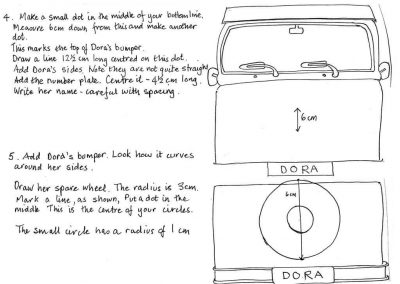 4. Make a small dot in the middle of your bottom line.
Measure 6cm down from this and make another
dot.
This marks the top of Dora's bumper.
Draw a line 12½ cm long centred on this dot.
Add Dora's sides. Note they are not quite straight
Add the number plate. Centre it - 4½ cm long.
Write her name - careful with spacing.
6cm
DORA
5. Add Dora's bumper. Look how it curves
around her sides.
Draw her spare wheel. The radius is 3cm.
Mark a line, as shown, Put a dot in the
middle This is the centre of your circles.
The small circle has a radius of 1 cm
6cm
DORA